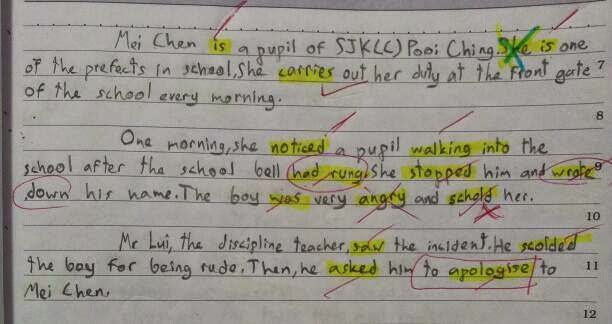 Mei Chen is a pupil of SJK(C) Pooi Ching. She is one
of the prefects in school, She carries out her duty at the front gate 7
of the school every morning.
8
One morning, she noticed a pupil walking into the
school after the school bell had rung. She stopped him and wrote 9
down his name. The boy was very angry and schold her.
10
Mr Lui, the discipline teacher, saw the incident. He scolded
the boy for being rude. Then, he asked him to apologise to 11
Mei Chen.
12